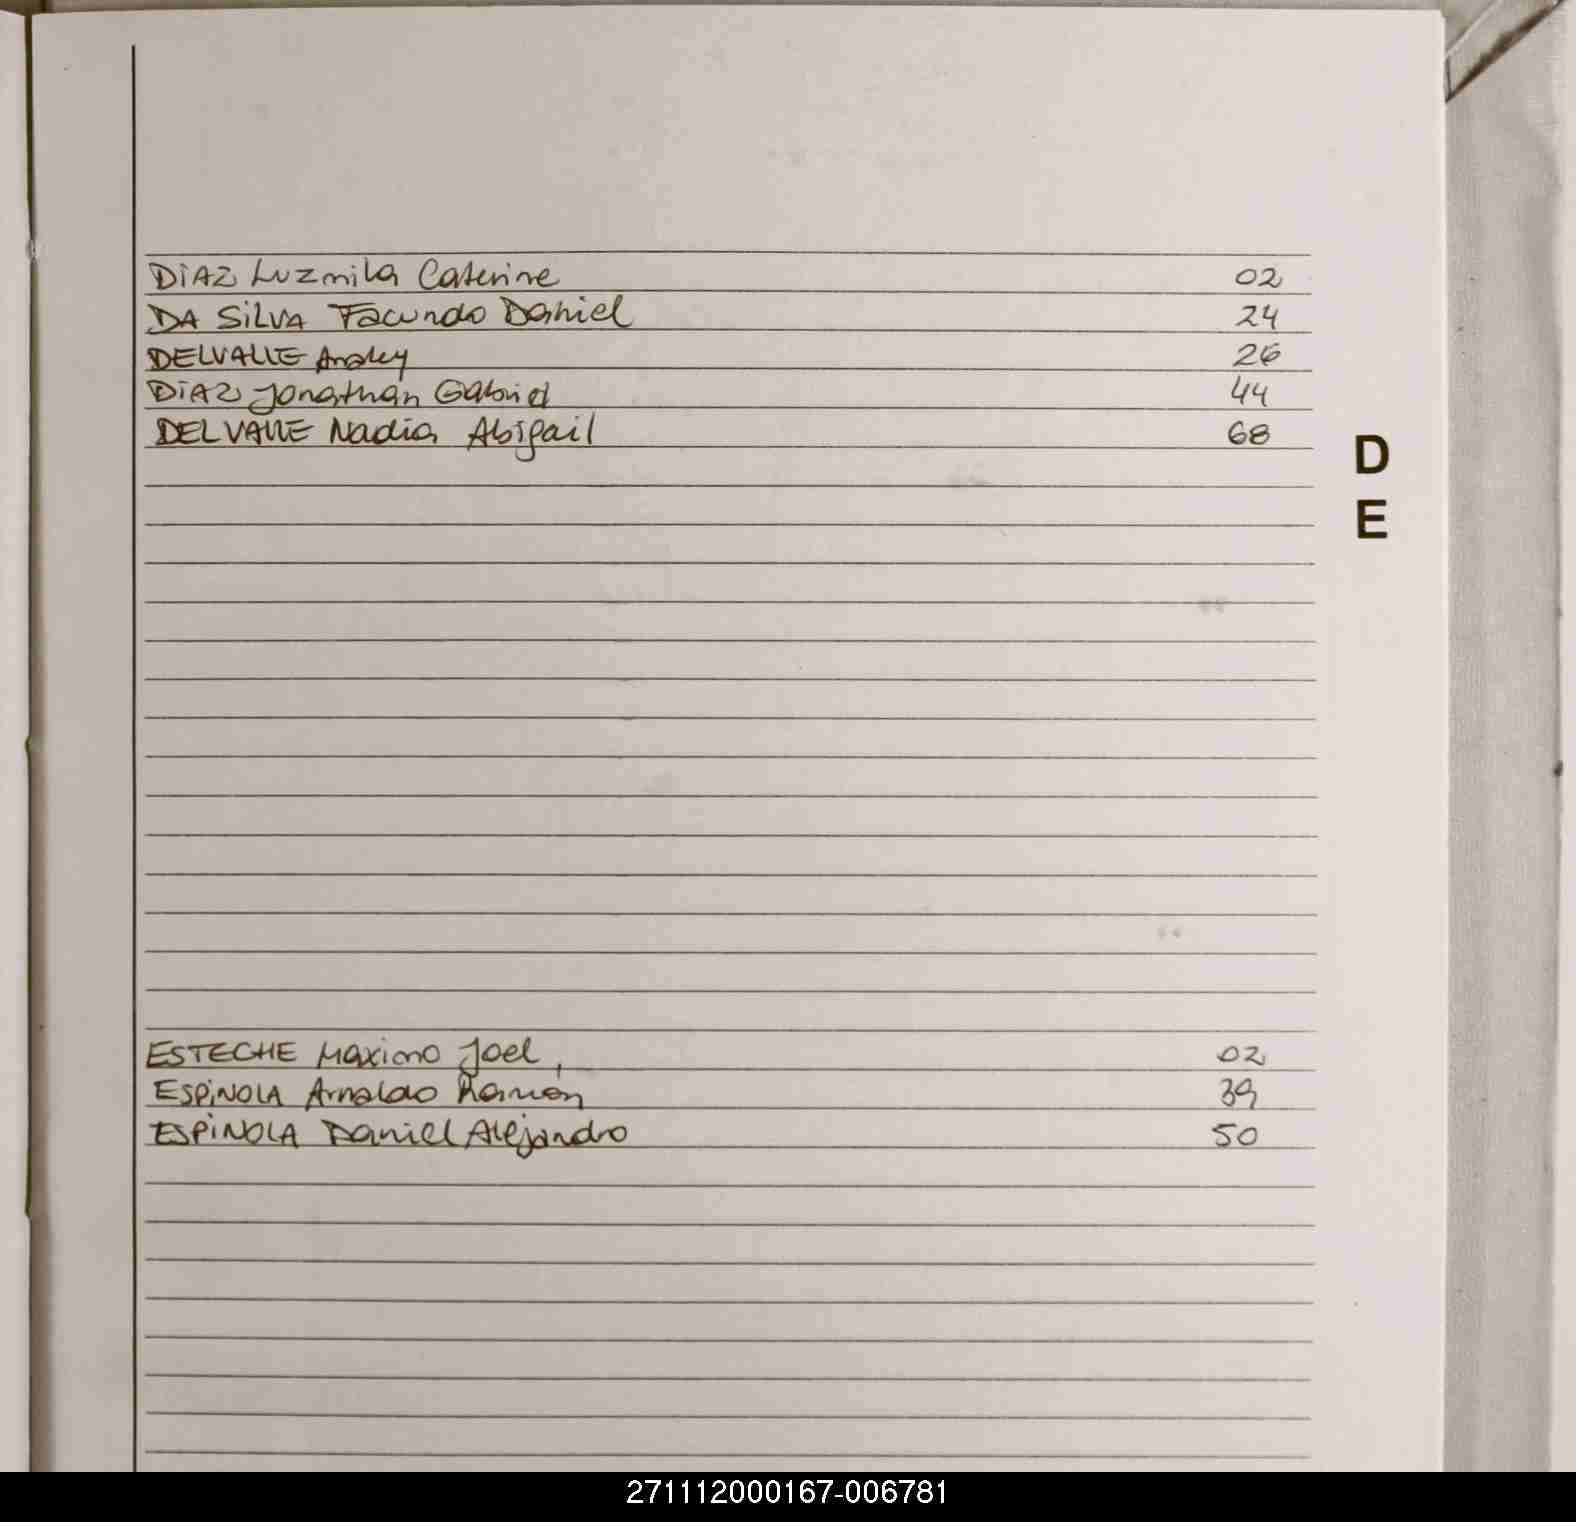 DiAZ Luzmila Caterine 02
DA SiLVA Facundo Daniel 24
DELVALLE Analey 26
DiAZ Jonathan Gabriel 44
DELVALLE Nadia Abigail 68
D
E
ESTECHE Maximo Joel, 02
ESPiNOLA Arnaldo Ramón 39
ESPiNOLA Daniel Alejandro 50
271112000167-006781